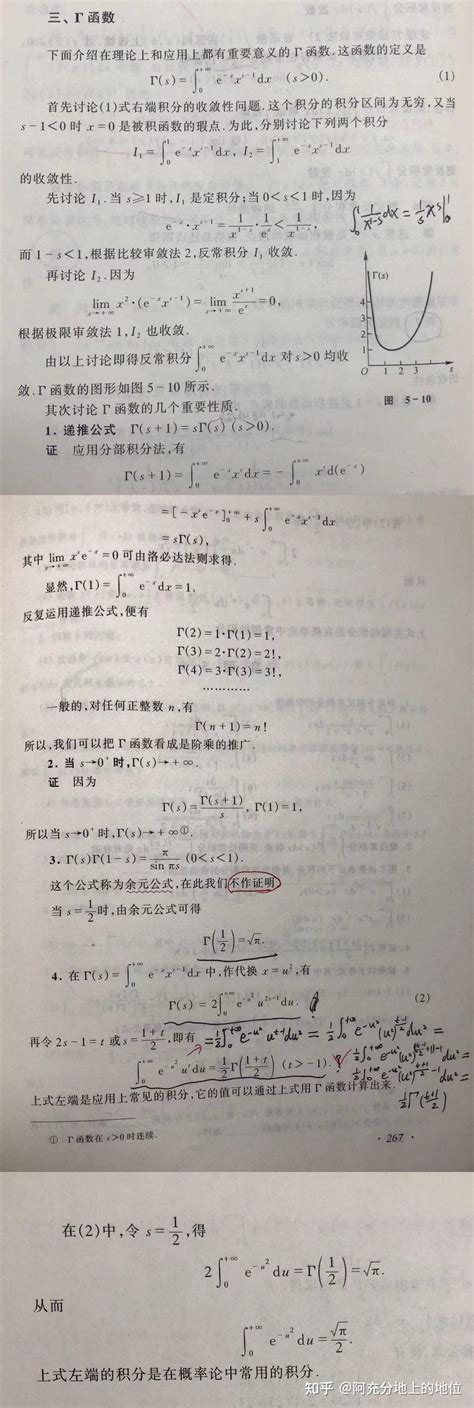 三、Γ函数
下面介绍在理论上和应用上都有重要意义的Γ函数.这函数的定义是
Γ(s)=∫₀^{+∞} e^{-x}x^{s-1}dx (s>0). (1)
首先讨论(1)式右端积分的收敛性问题.这个积分的积分区间为无穷,又当
s-1<0时x=0是被积函数的瑕点.为此,分别讨论下列两个积分
I₁=∫₀^1 e^{-x}x^{s-1}dx, I₂=∫₁^{+∞} e^{-x}x^{s-1}dx
的收敛性.
先讨论I₁.当s≥1时,I₁是定积分;当0<s<1时,因为
e^{-x}·x^{s-1}=\frac{1}{x^{1-s}}·\frac{1}{e^x}<\frac{1}{x^{1-s}},
∫₀^1 \frac{1}{x^{1-s}}dx=\frac{1}{s}x^s|₀^1
而1-s<1,根据比较审敛法2,反常积分I₁收敛.
再讨论I₂.因为
\lim_{x→+∞} x²·(e^{-x}x^{s-1})=\lim_{x→+∞}\frac{x^{s+1}}{e^x}=0,
根据极限审敛法1,I₂也收敛.
由以上讨论即得反常积分∫₀^{+∞} e^{-x}x^{s-1}dx对s>0均收
敛.Γ函数的图形如图5-10所示.
Γ(s)
4
3
2
1
O 1 2 3 s
图 5-10
其次讨论Γ函数的几个重要性质.
1. 递推公式 Γ(s+1)=sΓ(s) (s>0).
证 应用分部积分法,有
Γ(s+1)=∫₀^{+∞} e^{-x}x^s dx=-∫₀^{+∞} x^s d(e^{-x})
=[-x^s e^{-x}]₀^{+∞}+s∫₀^{+∞} e^{-x}x^{s-1}dx
=sΓ(s),
其中\lim_{x→+∞} x^s e^{-x}=0可由洛必达法则求得.
显然,Γ(1)=∫₀^{+∞} e^{-x}dx=1.
反复运用递推公式,便有
Γ(2)=1·Γ(1)=1,
Γ(3)=2·Γ(2)=2!,
Γ(4)=3·Γ(3)=3!,
…………
一般的,对任何正整数n,有
Γ(n+1)=n!
所以,我们可以把Γ函数看成是阶乘的推广.
2. 当s→0⁺时,Γ(s)→+∞.
证 因为
Γ(s)=\frac{Γ(s+1)}{s}, Γ(1)=1,
所以当s→0⁺时,Γ(s)→+∞①.
3. Γ(s)Γ(1-s)=\frac{π}{\sin πs} (0<s<1).
这个公式称为余元公式,在此我们不作证明.
当s=\frac{1}{2}时,由余元公式可得
Γ(\frac{1}{2})=√π.
4. 在Γ(s)=∫₀^{+∞} e^{-x}x^{s-1}dx中,作代换x=u²,有
Γ(s)=2∫₀^{+∞} e^{-u²}u^{2s-1}du. (2)
再令2s-1=t或s=\frac{1+t}{2},即有
∫₀^{+∞} e^{-u²}u^t du=\frac{1}{2}Γ(\frac{1+t}{2}) (t>-1).
上式左端是应用上常见的积分,它的值可以通过上式用Γ函数计算出来.
① Γ函数在s>0时连续.
·267·
在(2)中,令s=\frac{1}{2},得
2∫₀^{+∞} e^{-u²}du=Γ(\frac{1}{2})=√π.
从而
∫₀^{+∞} e^{-u²}du=\frac{√π}{2}.
上式左端的积分是在概率论中常用的积分.
知乎 @阿充分地上的地位